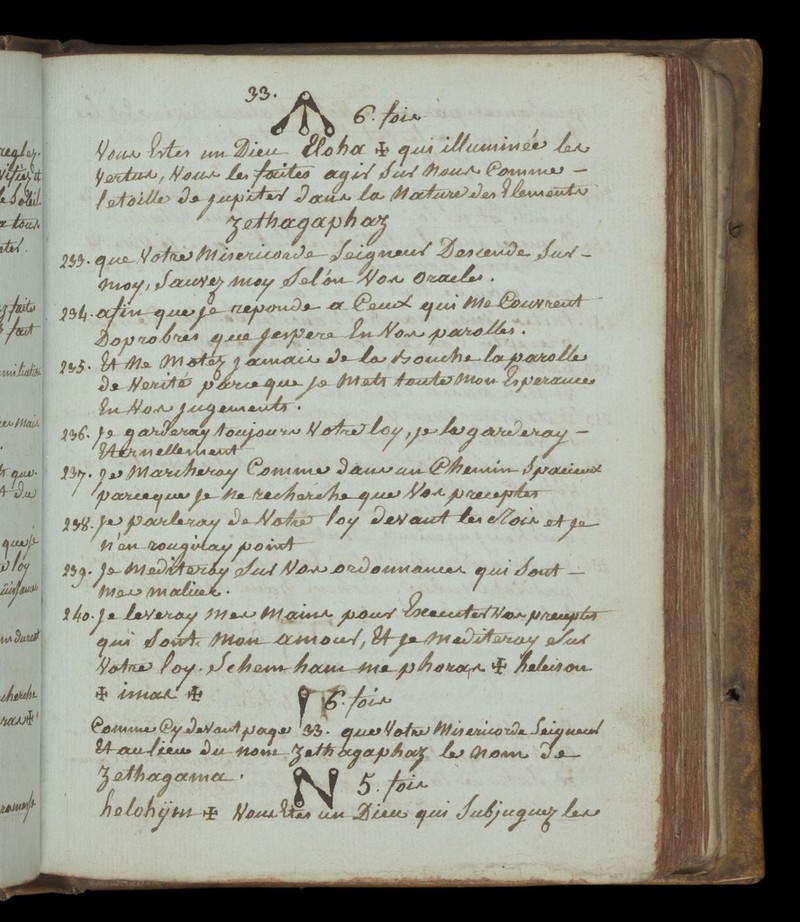 33.
6. fois
Vous Estes un Dieu Eloha ✠ qui illuminée les
Vertus, Vous les faites agir sur Nous Comme -
l'etoille de jupiter dans la Nature des Elements
Zethagaphaz
233. que Votre Misericorde Seigneur Descende sur -
moy, Sauvez moy Selon Vos oracles.
234. afin que je reponde a Ceux qui me Couvrent
Doprobres que jespere En Vos parolles.
235. Et Ne Motez jamais de la Bouche la parolle
de Verité parceque je Mets toute Mon Esperance
En Vos jugements.
236. je garderay toujours Votre loy, je la garderay -
Eternellement
237. je Marcheray Comme dans un Chemin Spacieux
parceque je Ne recherche que Vos preceptes
238. je parleray de Votre loy devant les Rois et je
n'en rougiray point
239. je mediteray Sur Vos ordonnances qui Sont -
Mes malices.
240. je leveray mes Mains pour Executer Vos preceptes
qui Sont mon amour, Et je mediteray Sur
Votre loy. Schem ham me phoras ✠ heleison
✠ imas ✠
6. fois
Comme Cy devant page 33. que Votre Misericorde Seigneur
Et au lieu du nom Zethagaphaz le Nom de
Zethagama.
5. fois
helohÿm ✠ Vous Etes un Dieu qui Subjuguez les